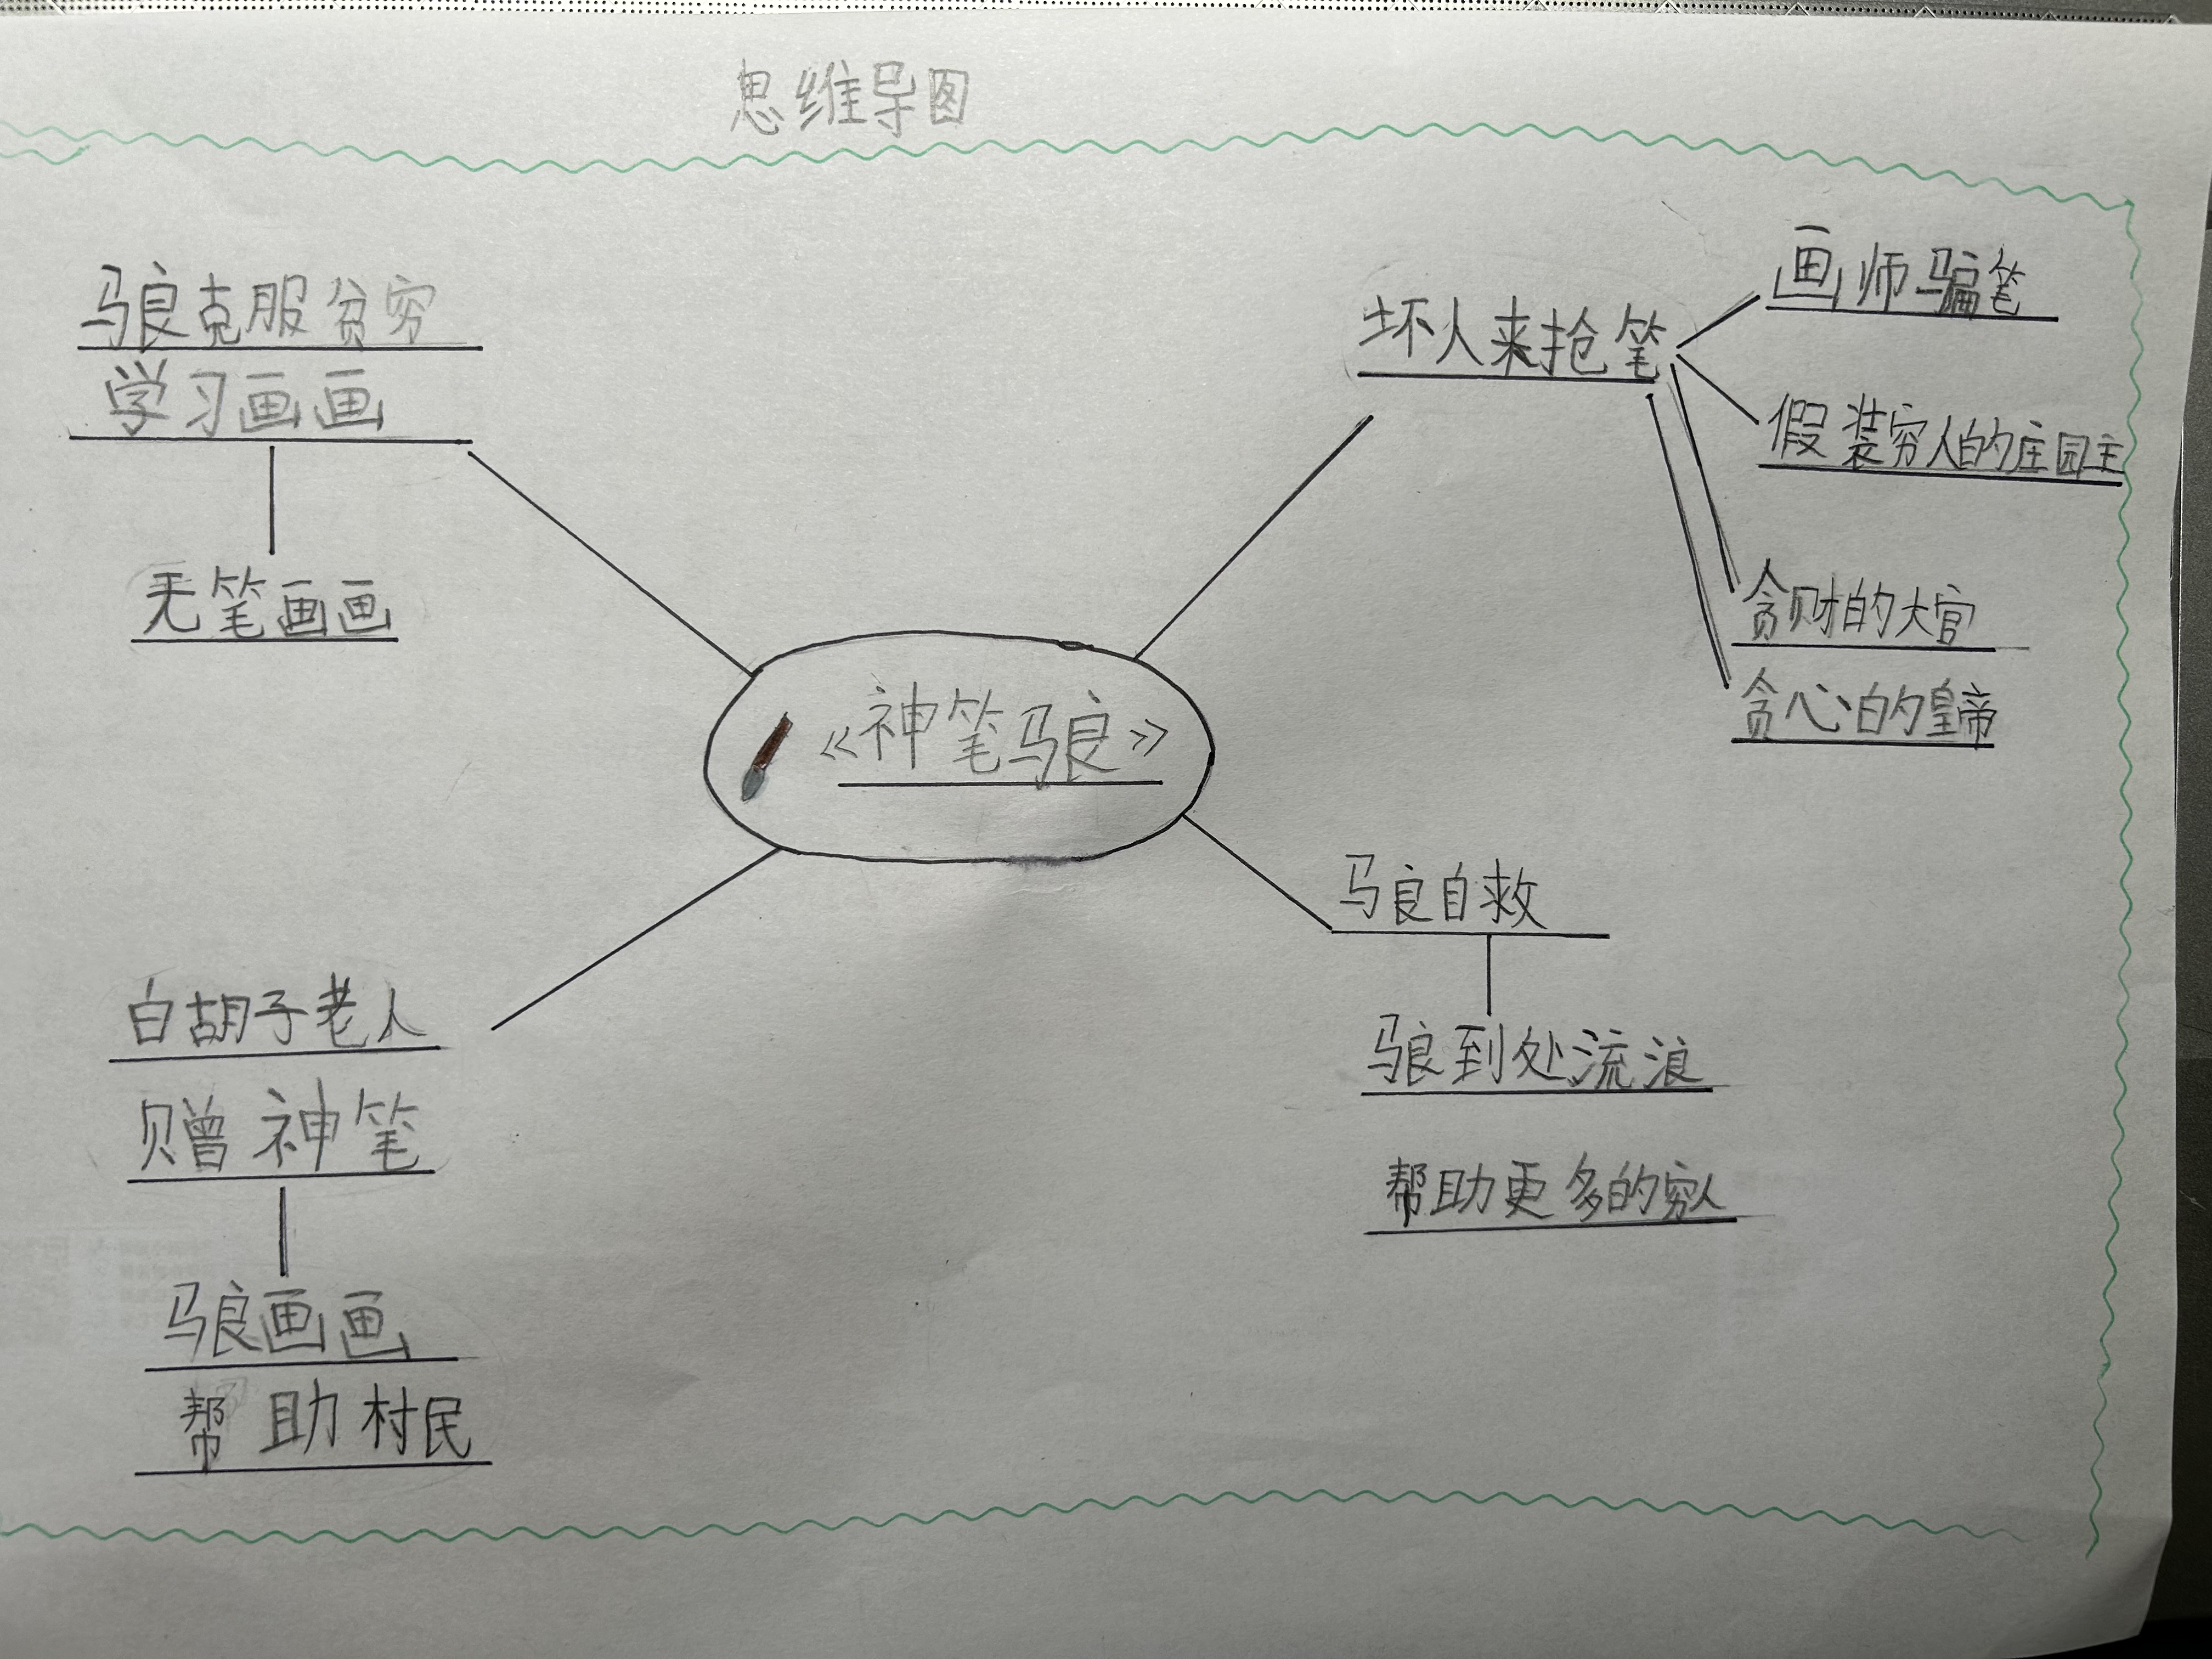 思维导图
马良克服贫穷
学习画画
无笔画画
白胡子老人
赠神笔
马良画画
帮助村民
《神笔马良》
坏人来抢笔
画师骗笔
假装穷人的庄园主
贪财的大官
贪心的皇帝
马良自救
马良到处流浪
帮助更多的穷人